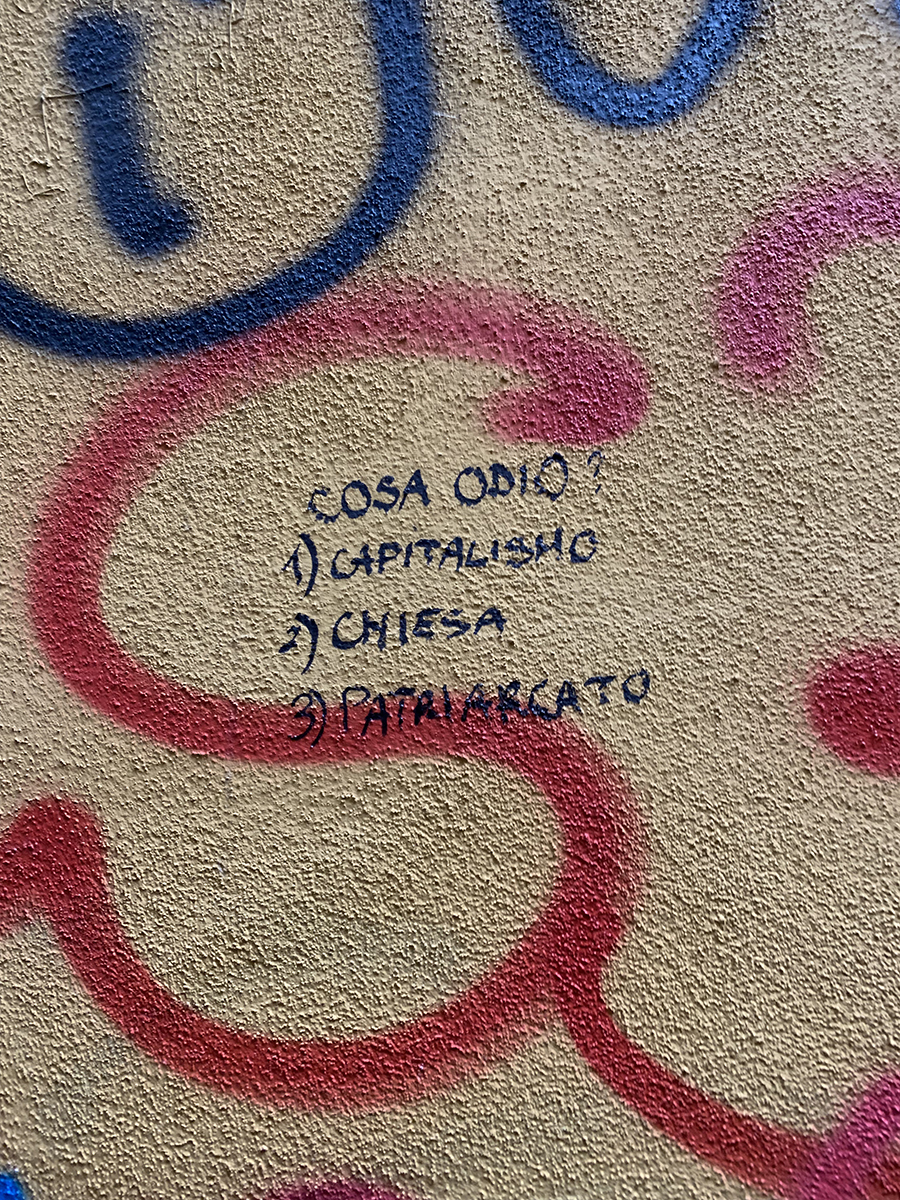 COSA ODIO?
1) CAPITALISMO
2) CHIESA
3) PATRIARCATO